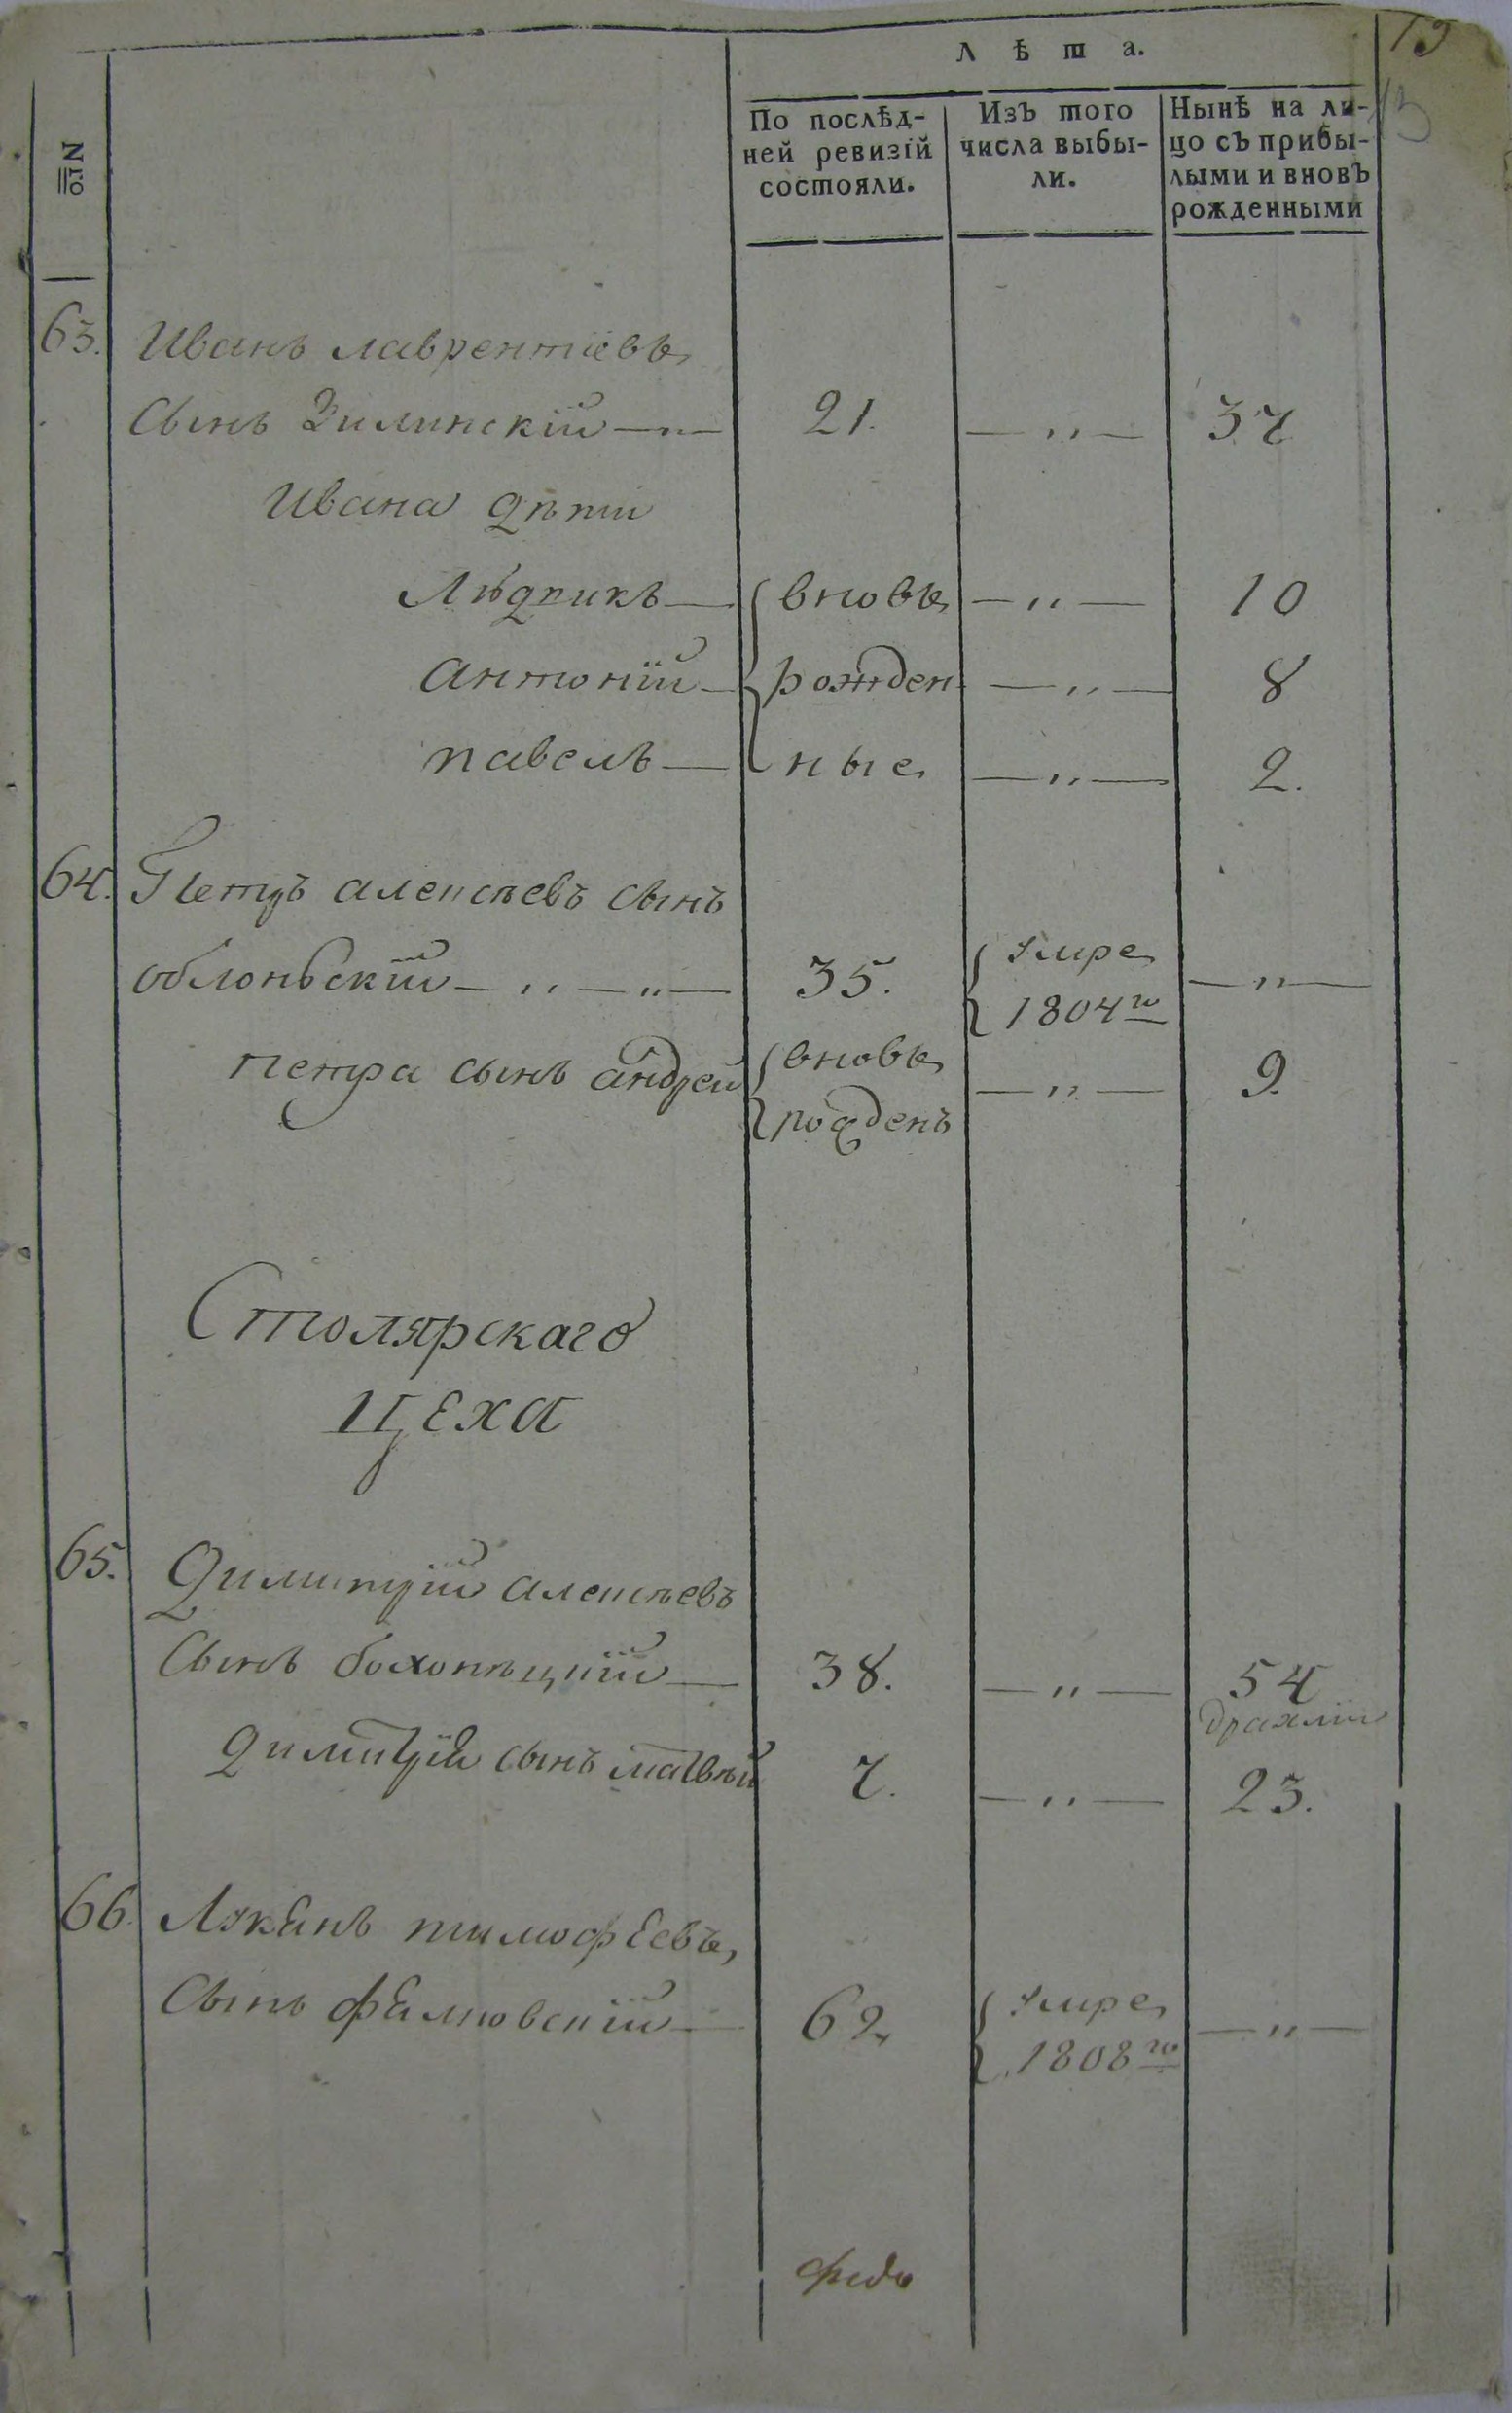 19
13
Лѣта.
No.
По послѣд-
ней ревизїй
состояли.
Изъ того
числа выбы-
ли.
Нынѣ на ли-
цо съ прибы-
лыми и вновь
рожденными
63. Иванъ лаврентїевъ
Сынъ Зилинскїй — " — 21. — " — 37
Ивана дѣти
вновь — " — 10
антонїй — рожден — " — 8
павелъ — ные — " — 2.
64. Петръ алексѣевъ сынъ
облонъский — " — " — 35. умре 1804го — " —
петра сынъ андрей вновь рожденъ — " — 9.
Столярскаго
цеха
65. Димитрїй алексѣевъ
Сынъ — 38. — " — 54
драхлїй
Димитрїя сынъ матвѣй 7. — " — 23.
66. Лукянъ тимофеевъ
Сынъ — 62 умре 1808го — " —